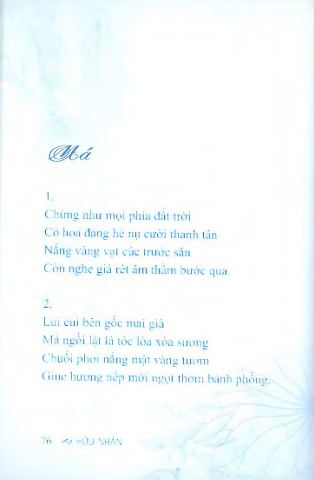 Má
1.
Chừng như mọi phía đất trời
Có hoa đang hé nụ cười thanh tân
Nắng vàng vạt cúc trước sân
Còn nghe giá rét âm thầm bước qua.
2.
Lui cui bên gốc mai già
Má ngồi lặt lá tóc lòa xòa sương
Chuối phơi nắng mật vàng tươm
Giục hương nếp mới ngọt thơm bánh phồng.
76 HỮU NHÂN